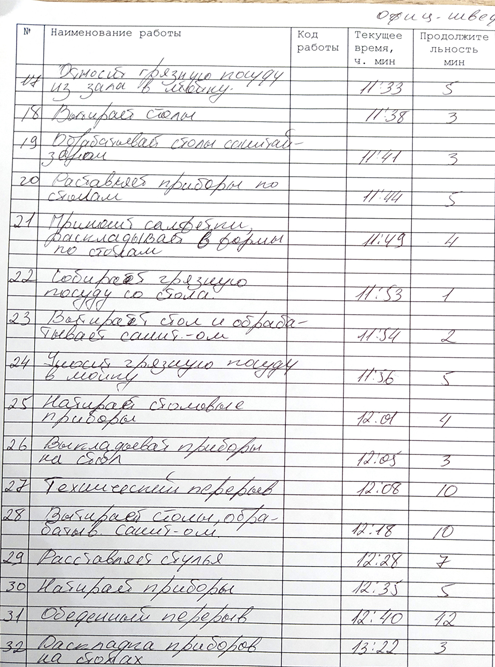 офиц-швед
№ Наименование работы Код работы Текущее время, ч. мин Продолжительность мин
17 Относит грязную посуду
из зала в мойку. 11:33 5
18 Вытирает столы 11:38 3
19 Обрабатывает столы санитай-
зером 11:41 3
20 Раставляет приборы по
столам 11:44 5
21 Приносит салфетки,
раскладывает в формы
по столам 11:49 4
22 Собирает грязную
посуду со стола 11:53 1
23 Вытирает стол и обраба-
тывает санит-ом 11:54 2
24 Уносит грязную посуду
в мойку 11:56 5
25 Натирает столовые
приборы 12.01 4
26 Выкладывает приборы
на стол 12:05 3
27 Технический перерыв 12:08 10
28 Вытирает столы, обра-
батыв. санит-ом. 12:18 10
29 Расставляет стулья 12:28 7
30 Натирает приборы 12:35 5
31 Обеденный перерыв 12:40 12
32 Раскладка приборов
на столах 13:22 3